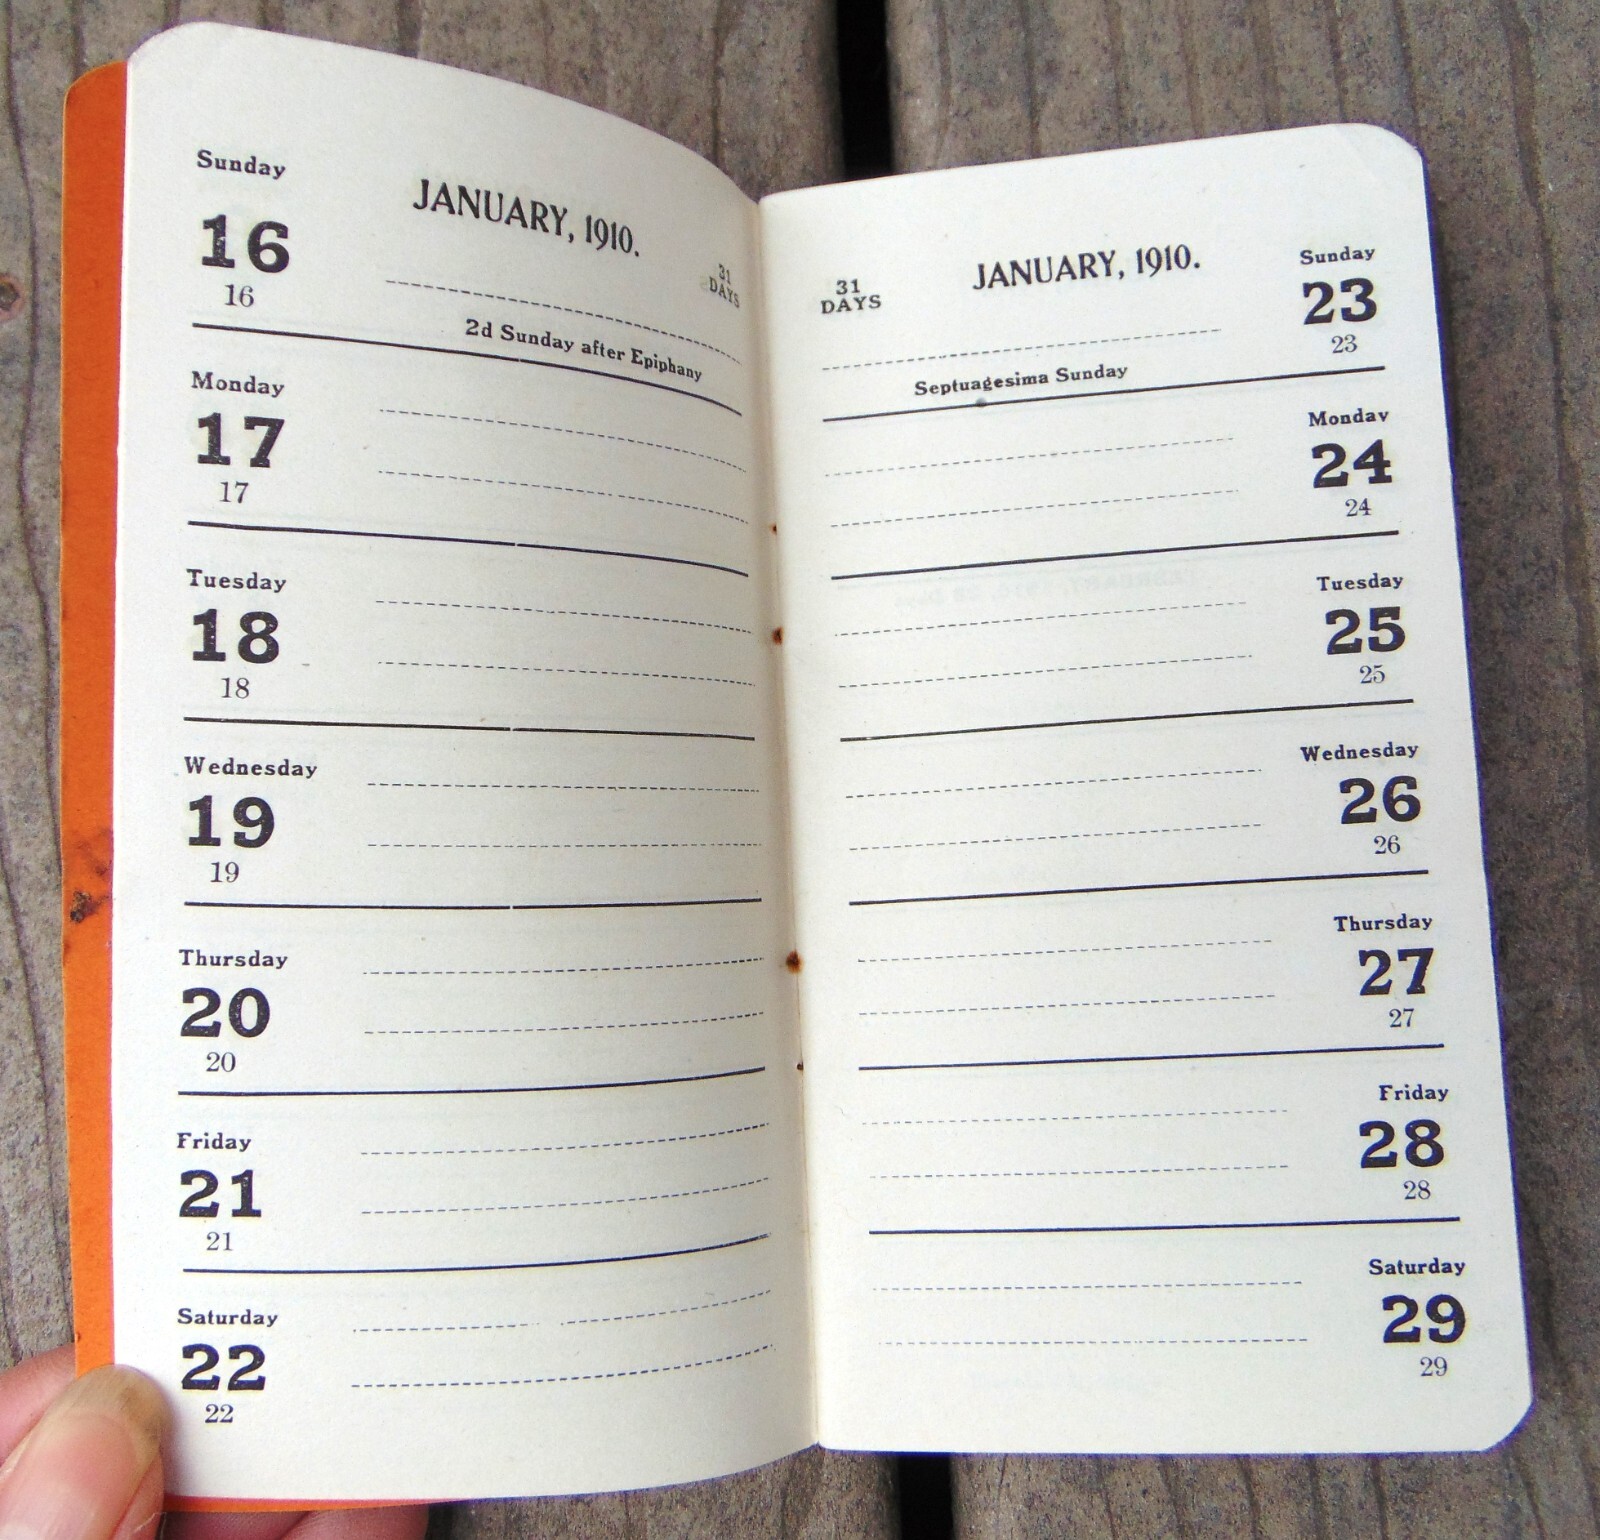 Sunday
16
16
JANUARY, 1910.
31
DAYS
2d Sunday after Epiphany
Monday
17
17
Tuesday
18
18
Wednesday
19
19
Thursday
20
20
Friday
21
21
Saturday
22
22
31
DAYS
JANUARY, 1910.
Sunday
23
23
Septuagesima Sunday
Monday
24
24
Tuesday
25
25
Wednesday
26
26
Thursday
27
27
Friday
28
28
Saturday
29
29